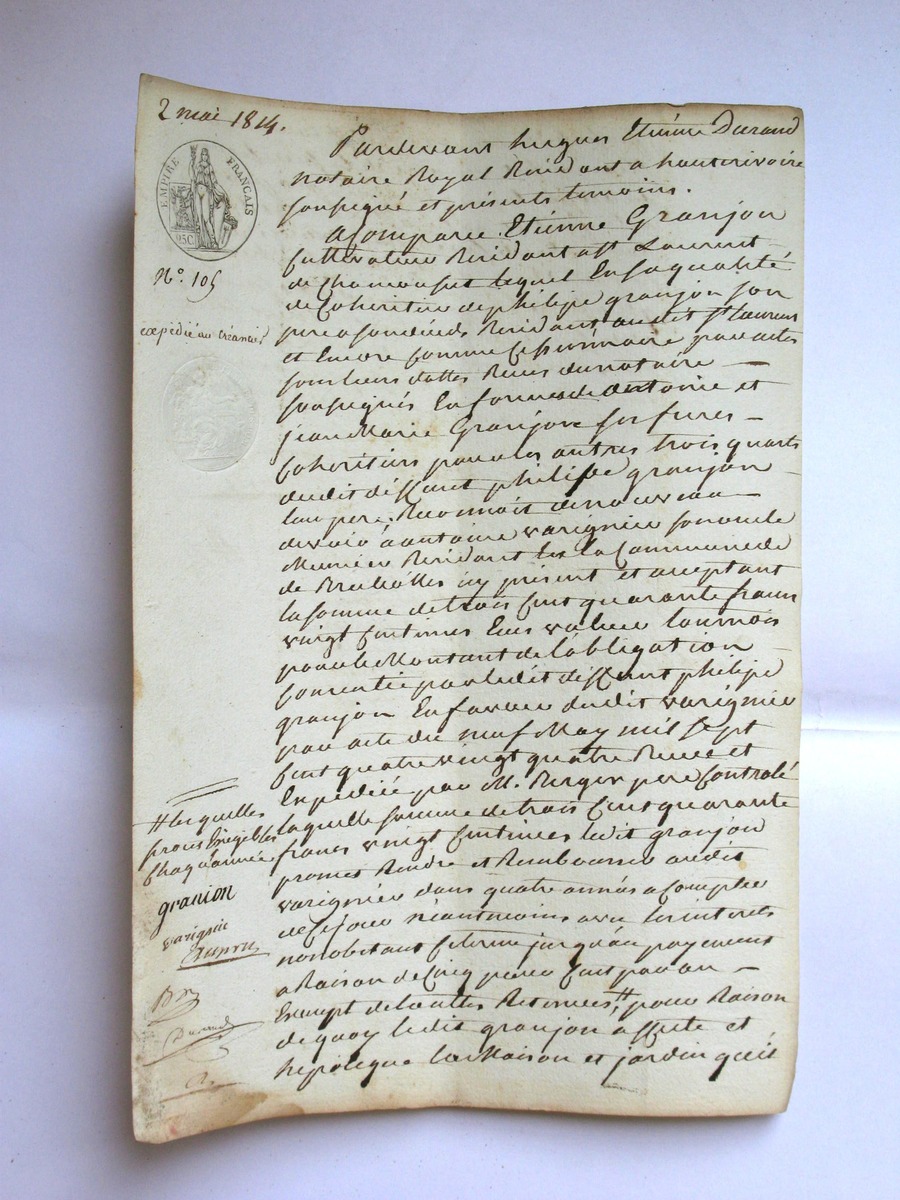 2 mai 1814.
EMPIRE FRANÇAIS
95C.
N°. 105
expédié au créancier
Pardevant hugues Etiénne Durand
notaire Royal Residant a hauterivoire
soussigné et présents temoins.
A Comparu Etienne Granjon
Cultivateur Residant a St Laurent
de Chamousset lequel En sa qualité
de Coheritier de philipe granjon son
pere a son décéds Residant audit St Laurent
et Encore Comme Cessionnaire par actes
sous leurs dattes Recus du notaire
soussignés En faveur de antoine et
jean Marie Granjon ses freres
Coheritiers pour les autres trois quarts
dudit deffunt philipe granjon
leur pere. Reconnoit de nouveau
devoir à antoine varignier son oncle
Meunier Residant la Commune de
de Brullolles icy présent et acceptant
la somme de trois Cent quarante francs
vaingt Centimes valeur tournois
pour le Montant de l'obligation
Consentie par ledit deffunt philipe
granjon En faveur dudit varignier
par acte du neuf May mil sept
Cent quatre vingt quatre Recue et
Expédiée par M. Berger pere Controlé
laquelle somme de trois Cent quarante
francs vaingt Centimes ledit granjon
promet Rendre et Rembourser audit
varignier dans quatre années a Compter
de Ce jour néantmoins avec les interets
nonobstant Ce terme jusqu'au payement
a Raison de Cinq pour Cent par an
Exempt de toutes Retenues # pour Raison
de quoy ledit granjon affecte et
hipoteque la Maison et jardin qu'il
# lesquelles
seront Exigibles
Chaque année
granion
varignie
Durand